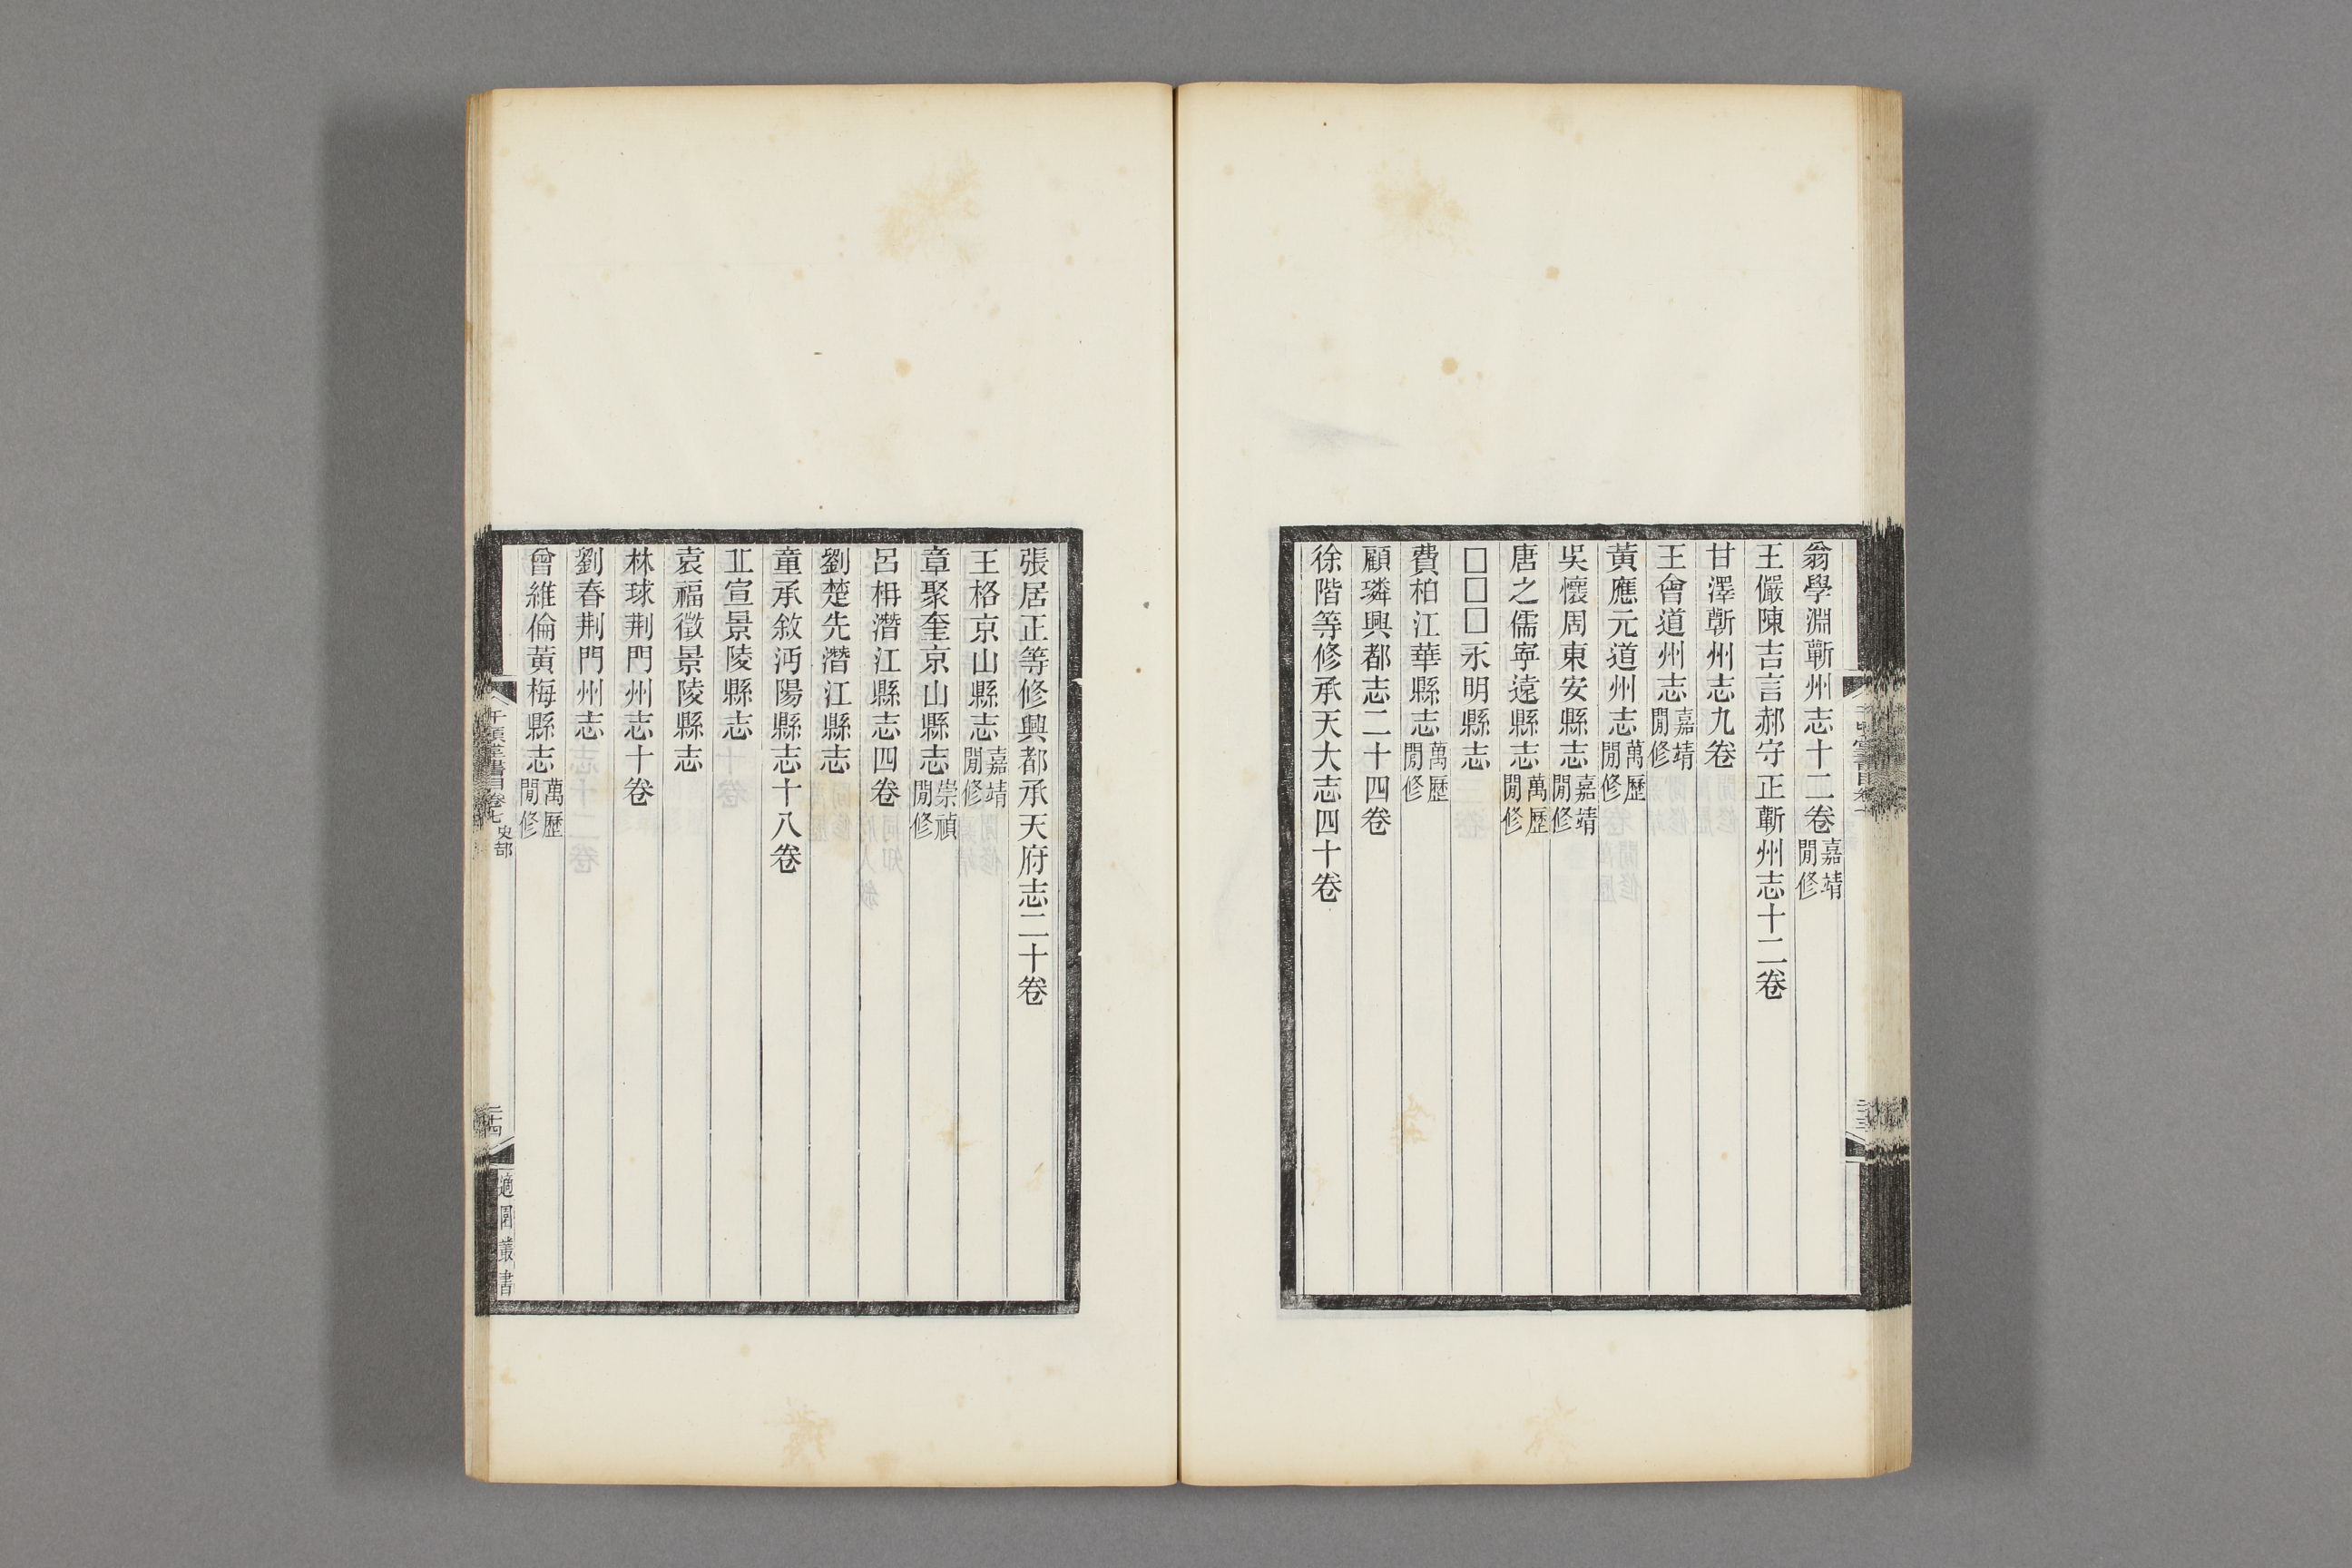 翁學淵蘄州志十二卷嘉靖閒修
王儼陳吉言郝守正蘄州志十二卷
甘澤蘄州志九卷
王會道州志嘉靖閒修
黃應元道州志萬歷閒修
吳懷周東安縣志嘉靖閒修
唐之儒寧遠縣志萬歷閒修
□□□永明縣志
費柏江華縣志萬歷閒修
顧璘興都志二十四卷
徐階等修承天大志四十卷
張居正等修興都承天府志二十卷
王格京山縣志嘉靖閒修
章聚奎京山縣志崇禎閒修
呂枏潛江縣志四卷
劉楚先潛江縣志
童承敘沔陽縣志十八卷
丠宣景陵縣志
袁福徵景陵縣志
林球荆門州志十卷
劉春荆門州志
曾維倫黃梅縣志萬歷閒修
千頃堂書目卷七 史部
二十四
適園叢書